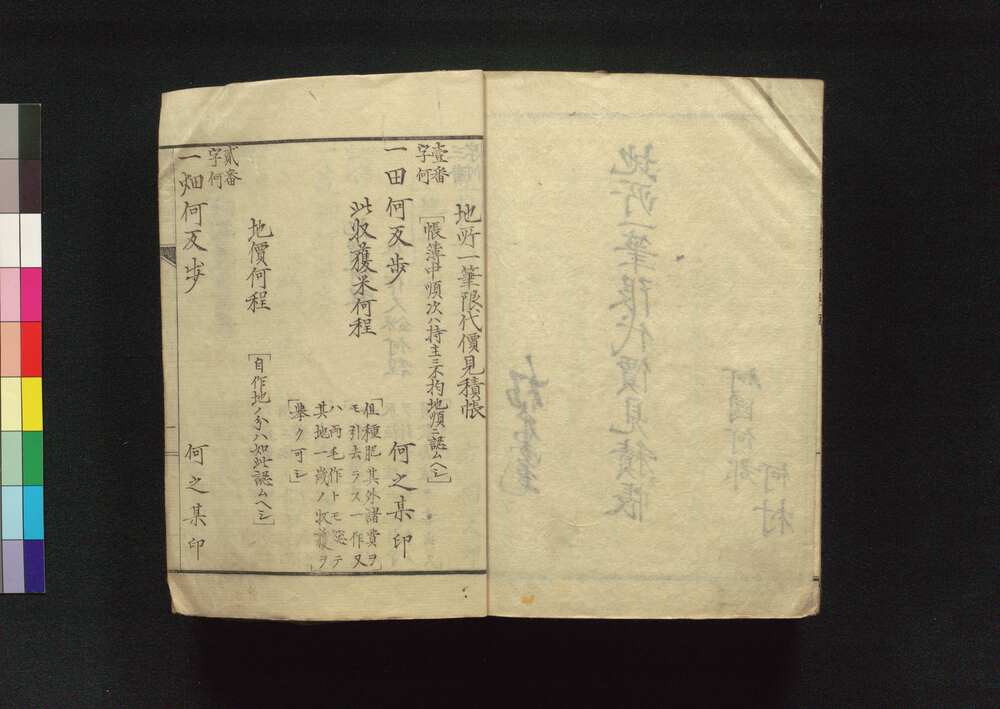 地所一筆限代價見積帳
[帳簿中順次ハ持主ニ不拘地順ニ認ムヘシ]
壹番
字何
一田何反歩 何之某印
此収獲米何程
[但種肥其外諸費ヲ
モ引去ラス一作又
ハ両毛作トモ總テ
其地一歳ノ收獲ヲ
擧ク可シ]
地價何程
[自作地ノ分ハ如此認ムヘシ]
貳番
字何
一畑何反歩 何之某印